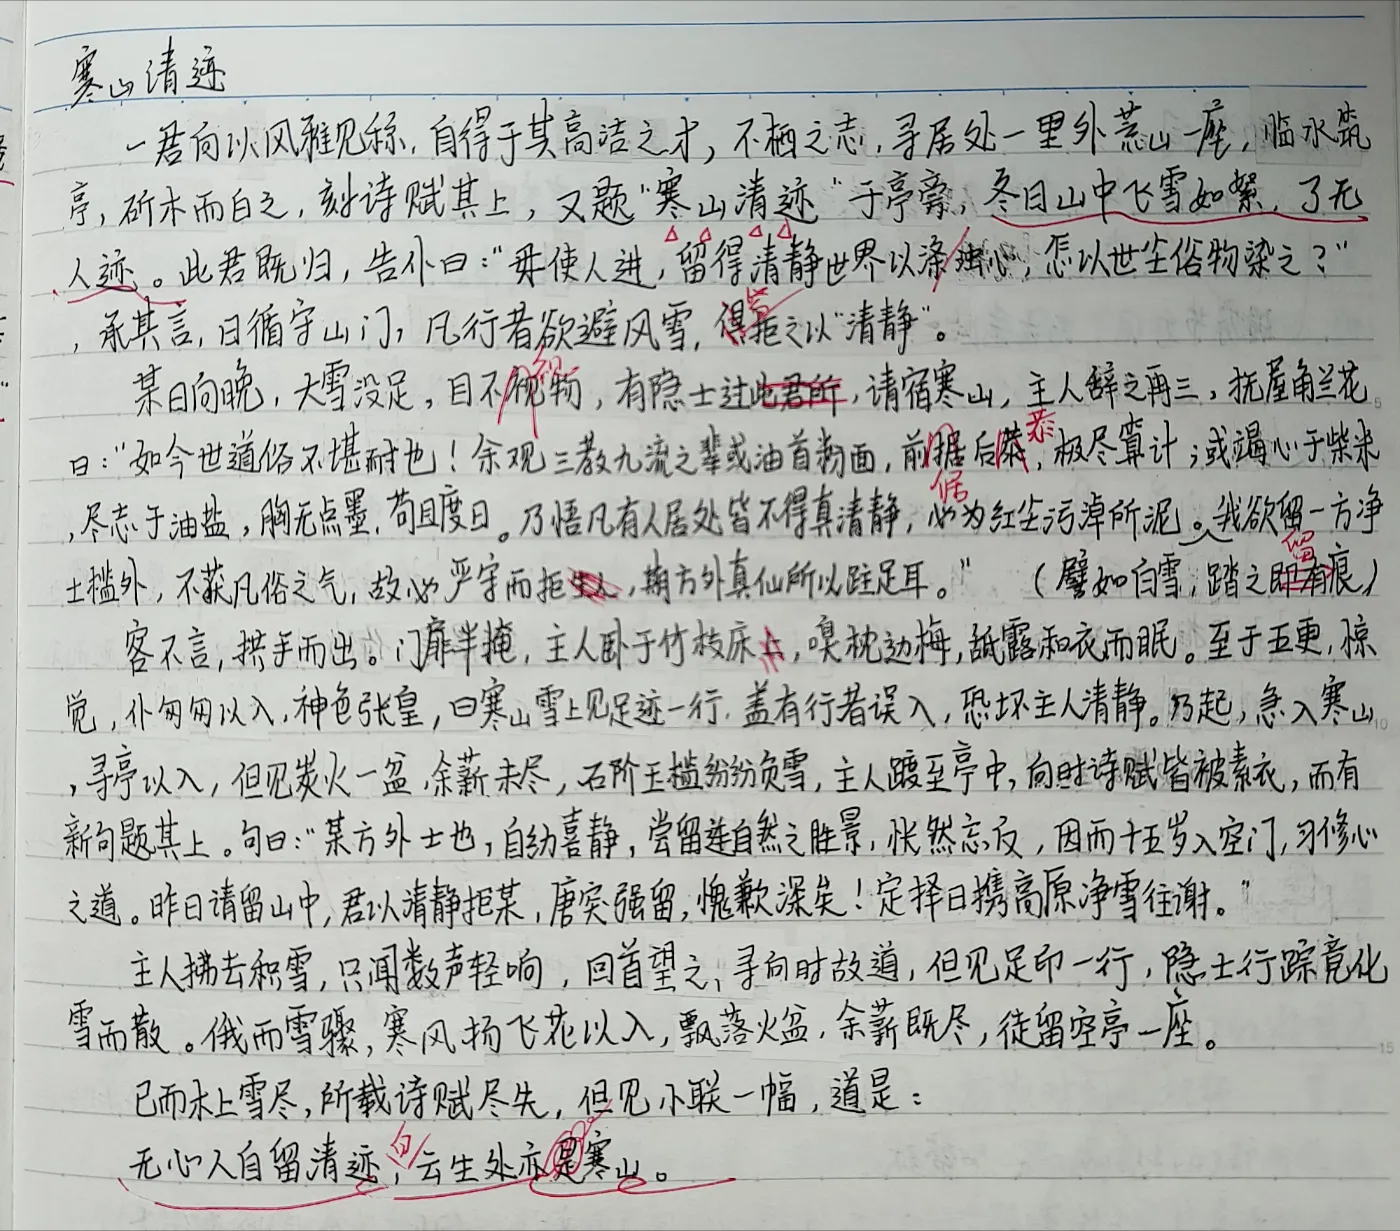 寒山清迹
一君向以风雅见称,自得于其高洁之才,不栖之志,寻居处一里外荒山一座,临水筑
亭,斫木而白之,刻诗赋其上,又题"寒山清迹"于亭旁,冬日山中飞雪如絮,了无
人迹。此君既归,告仆曰:"毋使人进,留得清静世界以涤浊心,怎以世尘俗物染之?"
,承其言,日循守山门,凡行者欲避风雪,得拒之以"清静"。
皆
某日向晚,大雪没足,目不视物,有隐士过此君所,请宿寒山,主人辞之再三,抚屋角兰花
视
曰:"如今世道俗不堪耐也!余观三教九流之辈或油首粉面,前据后恭,极尽算计;或竭心于柴米
恭
倨
,尽志于油盐,胸无点墨,苟且度日。乃悟凡有人居处皆不得真清静,必为红尘污淖所泥。我欲留一方净
土槛外,不获凡俗之气,故必严守而拒生人,期方外真仙所以驻足耳。" (譬如白雪,踏之即有痕)
留
客不言,拱手而出。门扉半掩,主人卧于竹枝床上,嗅枕边梅,舐露和衣而眠。至于五更,惊
觉,仆匆匆以入,神色张皇,曰寒山雪上见足迹一行,盖有行者误入,恐坏主人清静。乃起,急入寒山
,寻亭以入,但见炭火一盆,余薪未尽,石阶玉槛纷纷负雪,主人踱至亭中,向时诗赋皆被素衣,而有
新句题其上。句曰:"某方外士也,自幼喜静,尝留连自然之胜景,怅然忘反,因而十五岁入空门,习修心
之道。昨日请留山中,君以清静拒某,唐突强留,愧歉深矣!定择日携高原净雪往谢。"
主人拂去积雪,只闻数声轻响,回首望之,寻向时故道,但见足印一行,隐士行踪竟化
雪而散。俄而雪骤,寒风扬飞花以入,飘落火盆,余薪既尽,徒留空亭一座。
已而木上雪尽,所载诗赋尽失,但见小联一幅,道是:
无心人自留清迹,云生处亦是寒山。
白